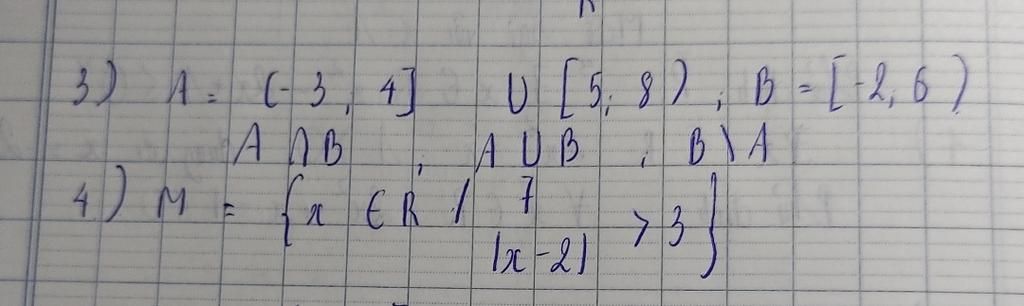 3) A = (-3, 4] U [5, 8) ; B = [-2, 6)
A ∩ B ; A U B ; B \ A
4) M = {x ∈ R / 7
|x-2| > 3}